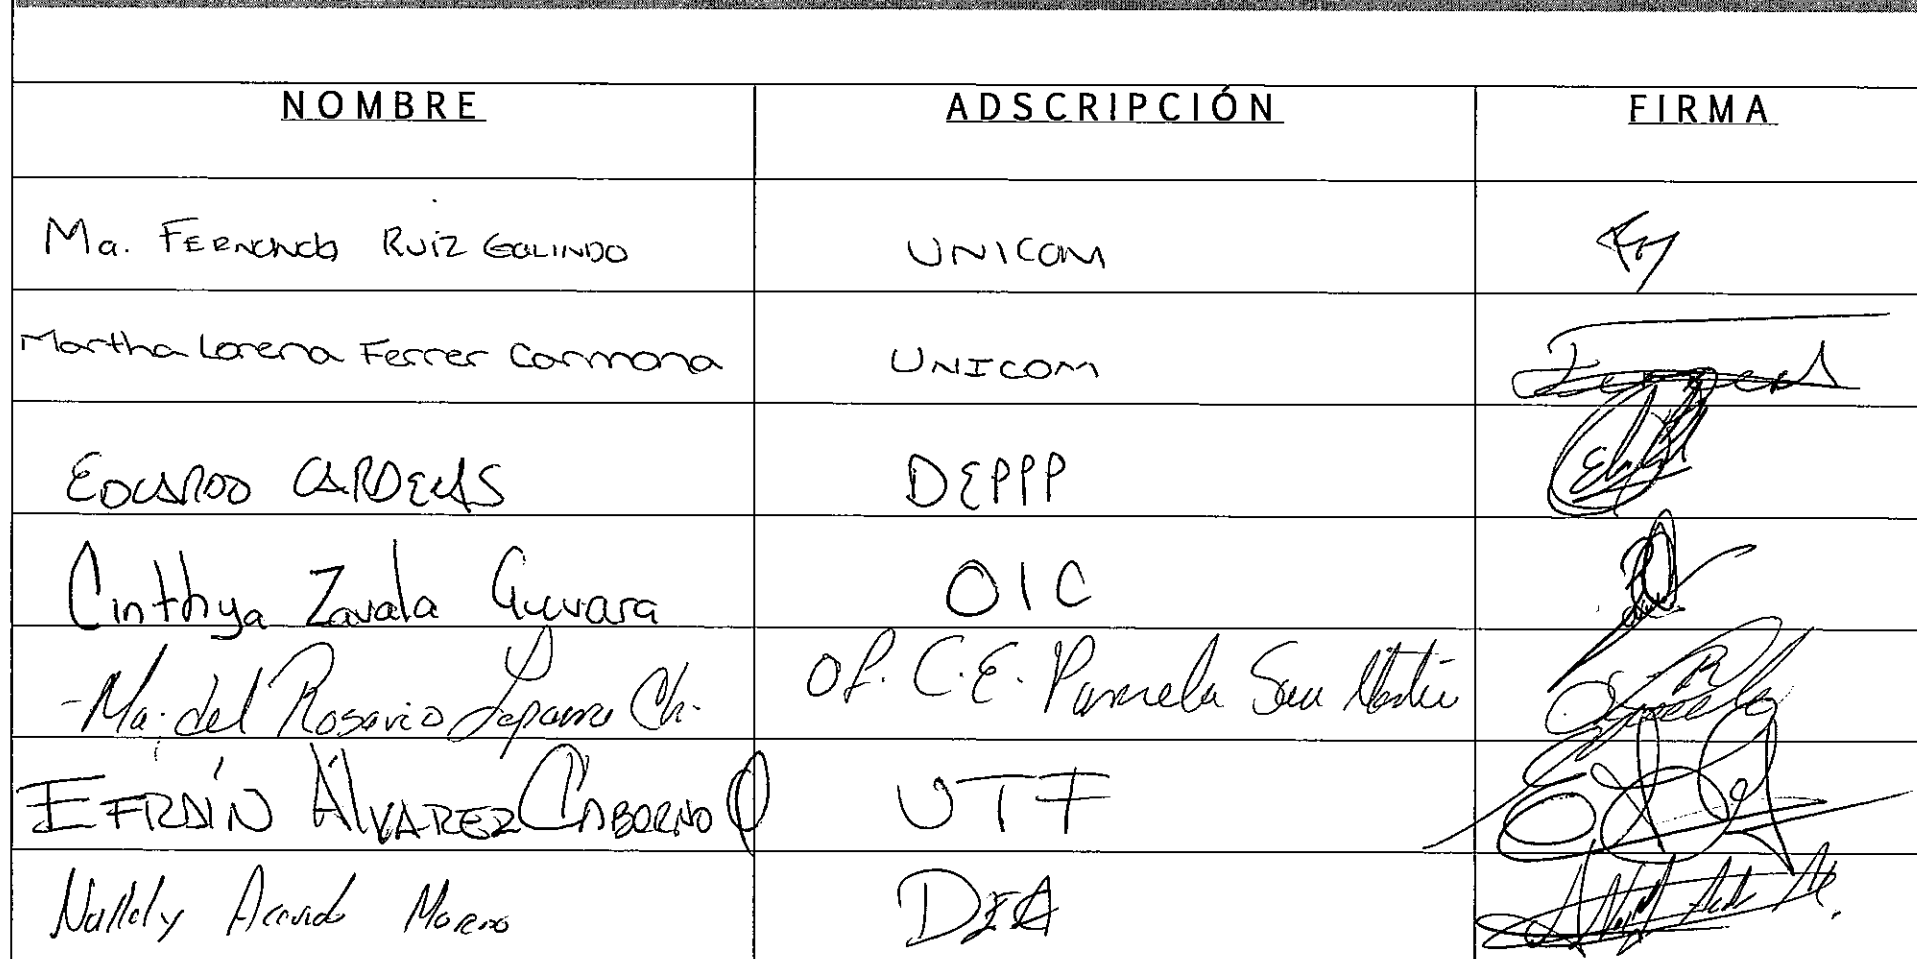 NOMBRE ADSCRIPCIÓN FIRMA
Ma. FERNANDA RUIZ GALINDO UNICOM
Martha Lorena Ferrer Carmona UNICOM
EDUARDO CARDENAS DEPPP
Cinthya Zavala Guevara OIC
-Ma. del Rosario Ch. Of. C.E. Pamela San Martín
EFRAÍN ÁLVAREZ UTF
Nallely Acevedo Moreno DEA